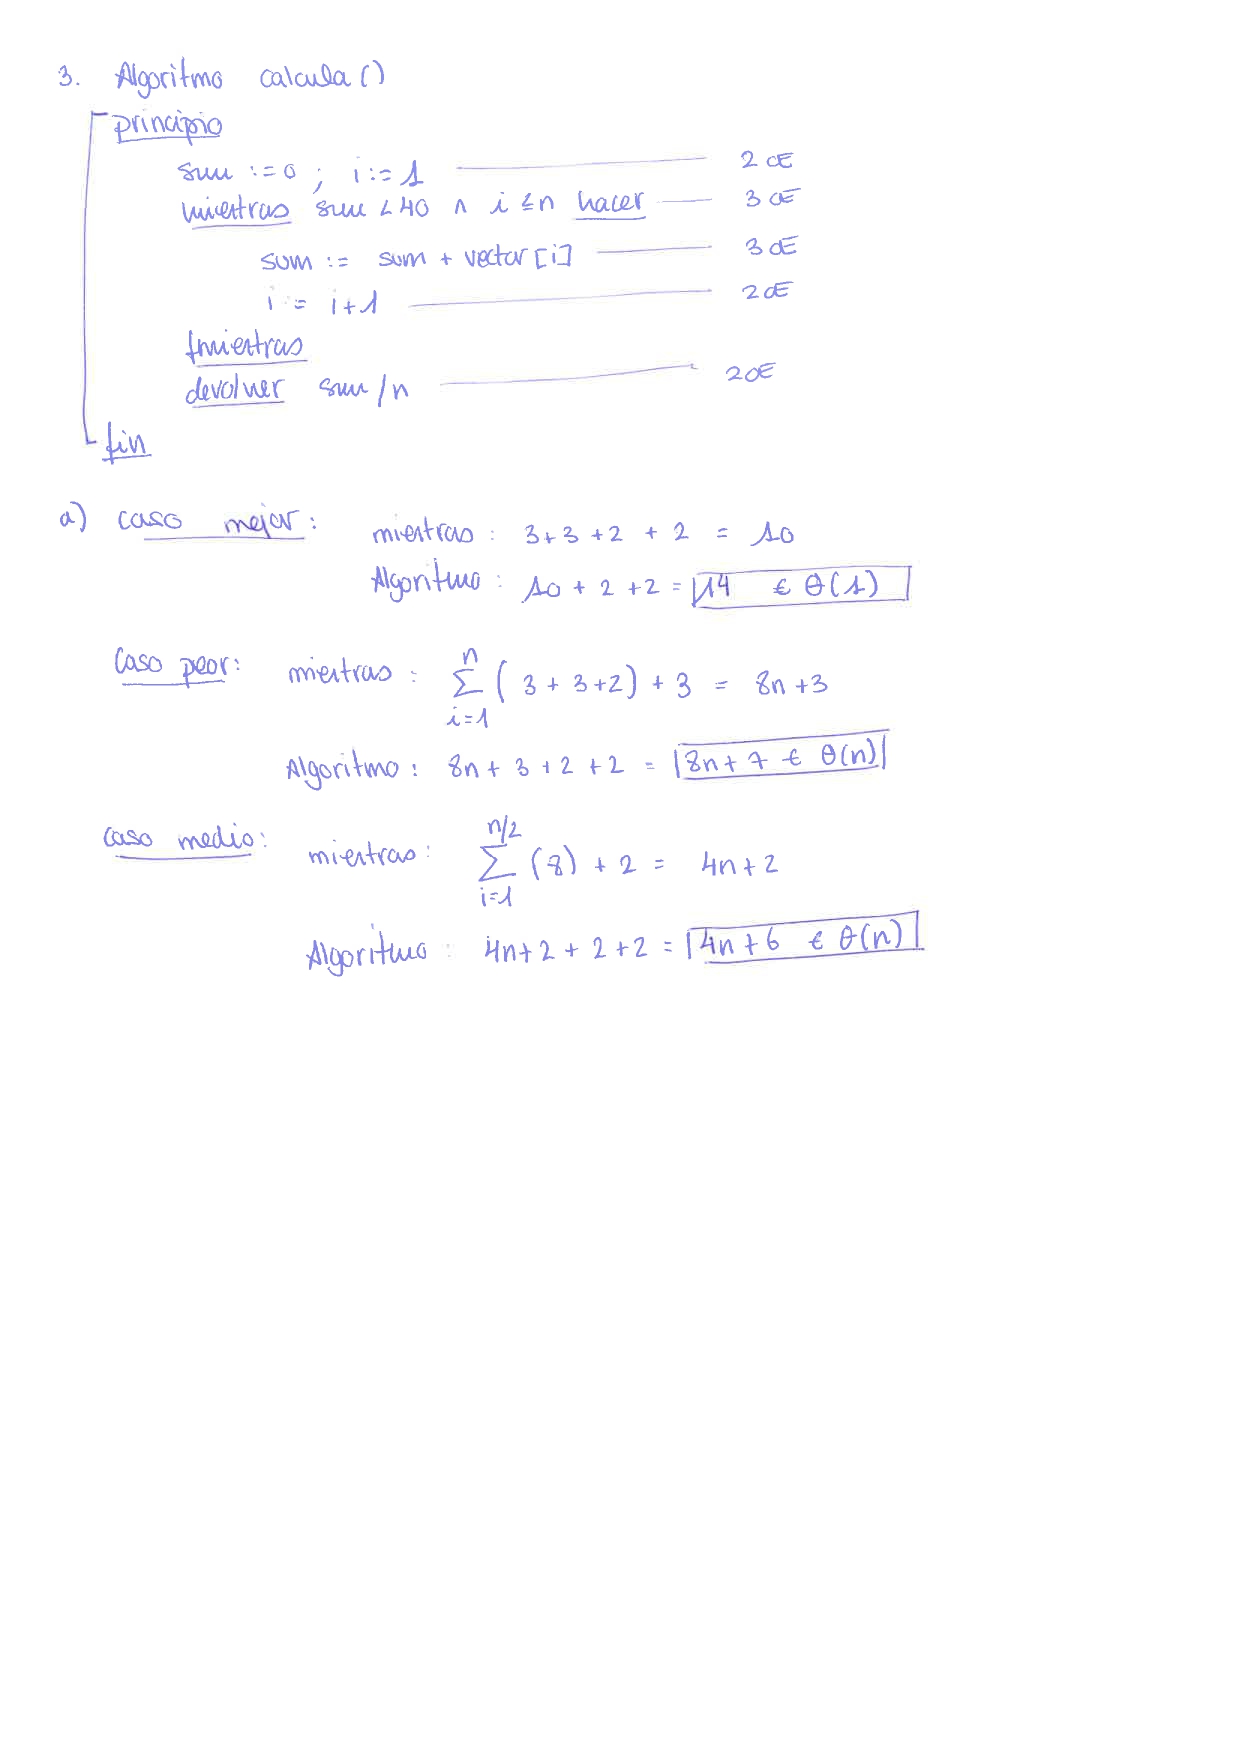 3. Algoritmo calcula()
principio
sum := 0 ; i := 1 2 OE
mientras sum < 40 ∧ i ≤ n hacer 3 OE
sum := sum + vector[i] 3 OE
i := i+1 2 OE
fmientras
devolver sum/n 2 OE
fin
a) caso mejor: mientras : 3+3+2+2 = 10
Algoritmo : 10 + 2 + 2 = 14 ∈ Θ(1)
Caso peor: mientras : n∑i=1 (3 + 3 + 2) + 3 = 8n + 3
Algoritmo : 8n + 3 + 2 + 2 = 8n + 7 ∈ Θ(n)
caso medio: mientras : n/2∑i=1 (8) + 2 = 4n + 2
Algoritmo : 4n + 2 + 2 + 2 = 4n + 6 ∈ Θ(n)